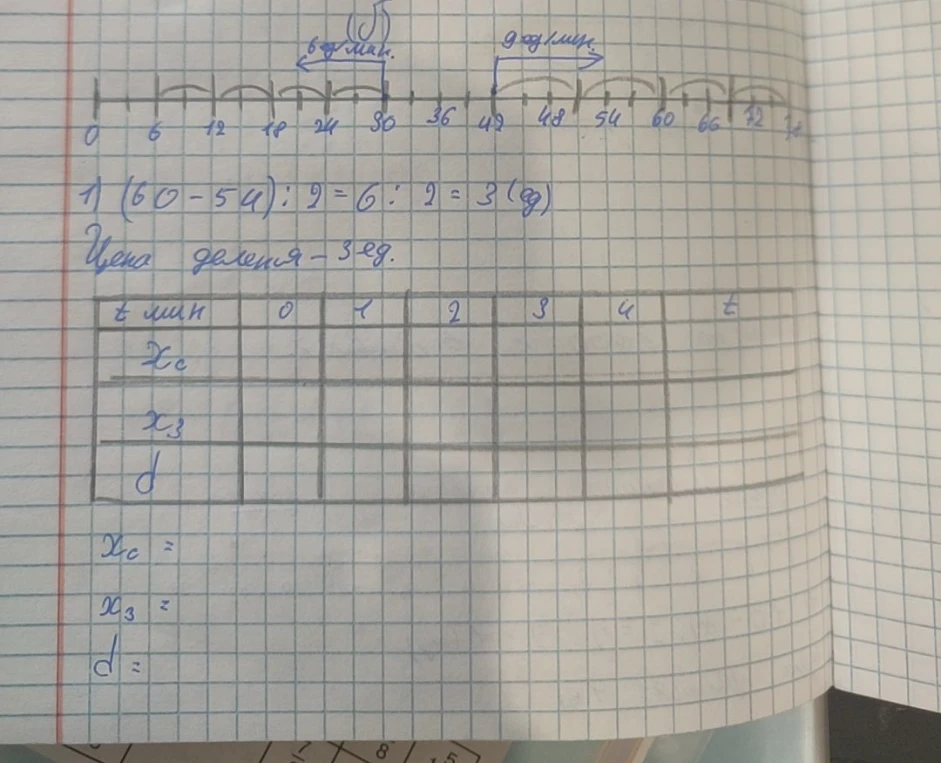 (5)
6 ед/мин. 9 ед/мин.
0 6 12 18 24 30 36 42 48 54 60 66 72
1) (60-54):2=6:2=3(ед)
Цена деленя-3ед.
t мин 0 1 2 3 4 t
xс
x3
d
xс =
x3 =
d=
7 8 5